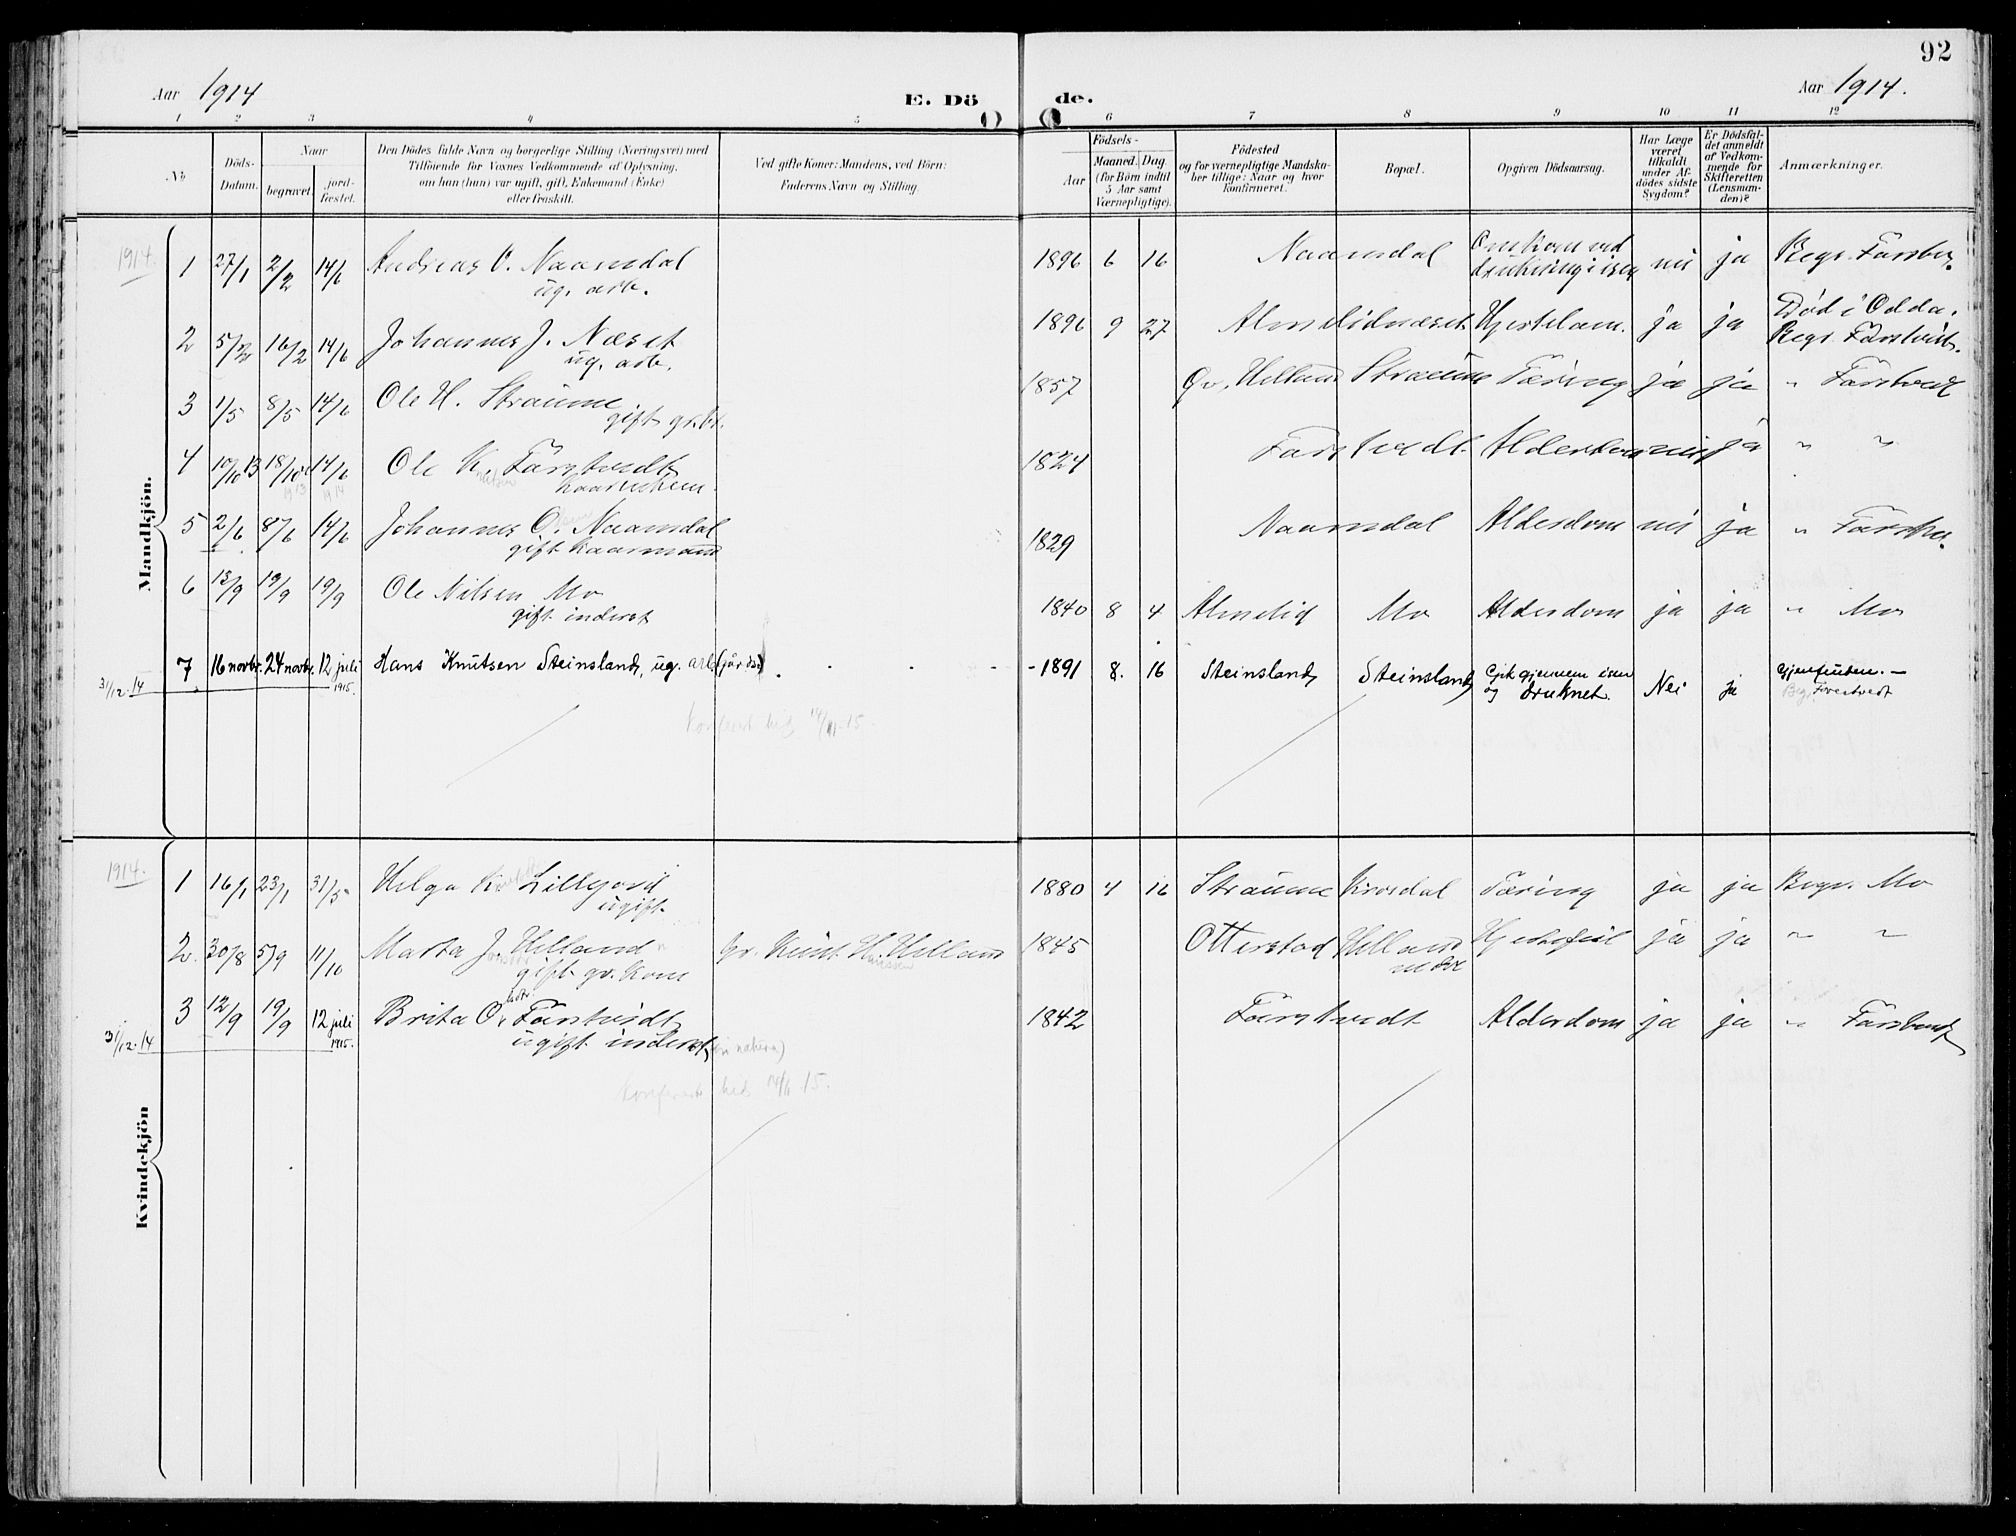 92
Aar 1914
E. Dö
de.
Aar 1914.
1 2 3 4 5 6 7 8 9 10 11 12
No
Döds-
Datum.
Naar
begravet.
jord-
fæstet.
Den Dödes fulde Navn og borgerlige Stilling (Næringsvei) med
Tilföiende for Voxnes Vedkommende af Oplysning,
om han (hun) var ugift, gift, Enkemand (Enke)
eller fraskilt.
Ved gifte Koner: Mandens, ved Börn:
Faderens Navn og Stilling.
Födsels-
Aar
Maaned. Dag
(for Börn indtil
5 Aar samt
Værnepligtige).
Födested
og for værnepligtige Mandska-
ber tillige: Naar og hvor
konfirmeret.
Bopæl.
Opgiven Dödsaarsag.
Har Læge
været
tilkaldt
under Af-
dödes sidste
Sygdom?
Er Dödsfal-
det anmeldt
af Vedkom-
mende for
Skifteretten
(Lensman-
den)?
Anmærkninger.
Mandkjön.
1914.
1 27/1 2/2 14/6 Andreas O. Naamdal
ug. arb.
1896 6 16 Naamdal Omkom ved
drukning i isen nei ja Begr. Farstv.
2 5/2 16/2 14/6 Johannes J. Næset
ug. arb.
1896 9 27 Almelidnæset Hjertelam. ja ja Död i Odda.
Begr. Farstvdt.
3 1/5 8/5 14/6 Ole H. Straume
gift grbr.
1857 Gr. Helland Straume Tæring ja ja " Farstvedt
4 10/10 13 18/10 14/6 Ole K. Farstvedt
1913 1914
kaarenkem.
1824 Farstvedt Alderdom nei ja " "
5 2/6 8/6 14/6 Johannes O. Naamdal
gift kaarmand
1829 Naamdal Alderdom nei ja " Farstv.
6 13/9 19/9 19/9 Ole Nilsen Mo
gift inderst
1840 8 4 Almelid Mo Alderdom ja ja " Mo
7 16 novbr. 24 novbr. 12 juli Hans Knutsen Steinsland, ug. arb. (gårds)
31/12.14 1915.
-1891 8. 16 Steinsland, Steinsland, Gik gjennem isen
og druknet. Nei ja Gjenfunden.-
Beg. Farstvedt
konferert hid 14/11-15.
Kvindekjön
1914.
1 16/1 23/1 31/5 Helga K. Lillejord
ugift
1880 4 16 Straume Krosdal Tæring ja ja Begr. Mo
2. 30/8 5/9 11/10 Marta J. Helland Gr. Knut H. Helland
gift gr. kone
1845 Otterstad Helland
nedre Hjertefeil ja ja " "
3 12/9 19/9 12 juli Brita O. Farstvedt
31/12.14 1915.
ugift inderst
1842 Farstvedt Alderdom ja ja " Farstvedt
konferert hid 14/11 15.